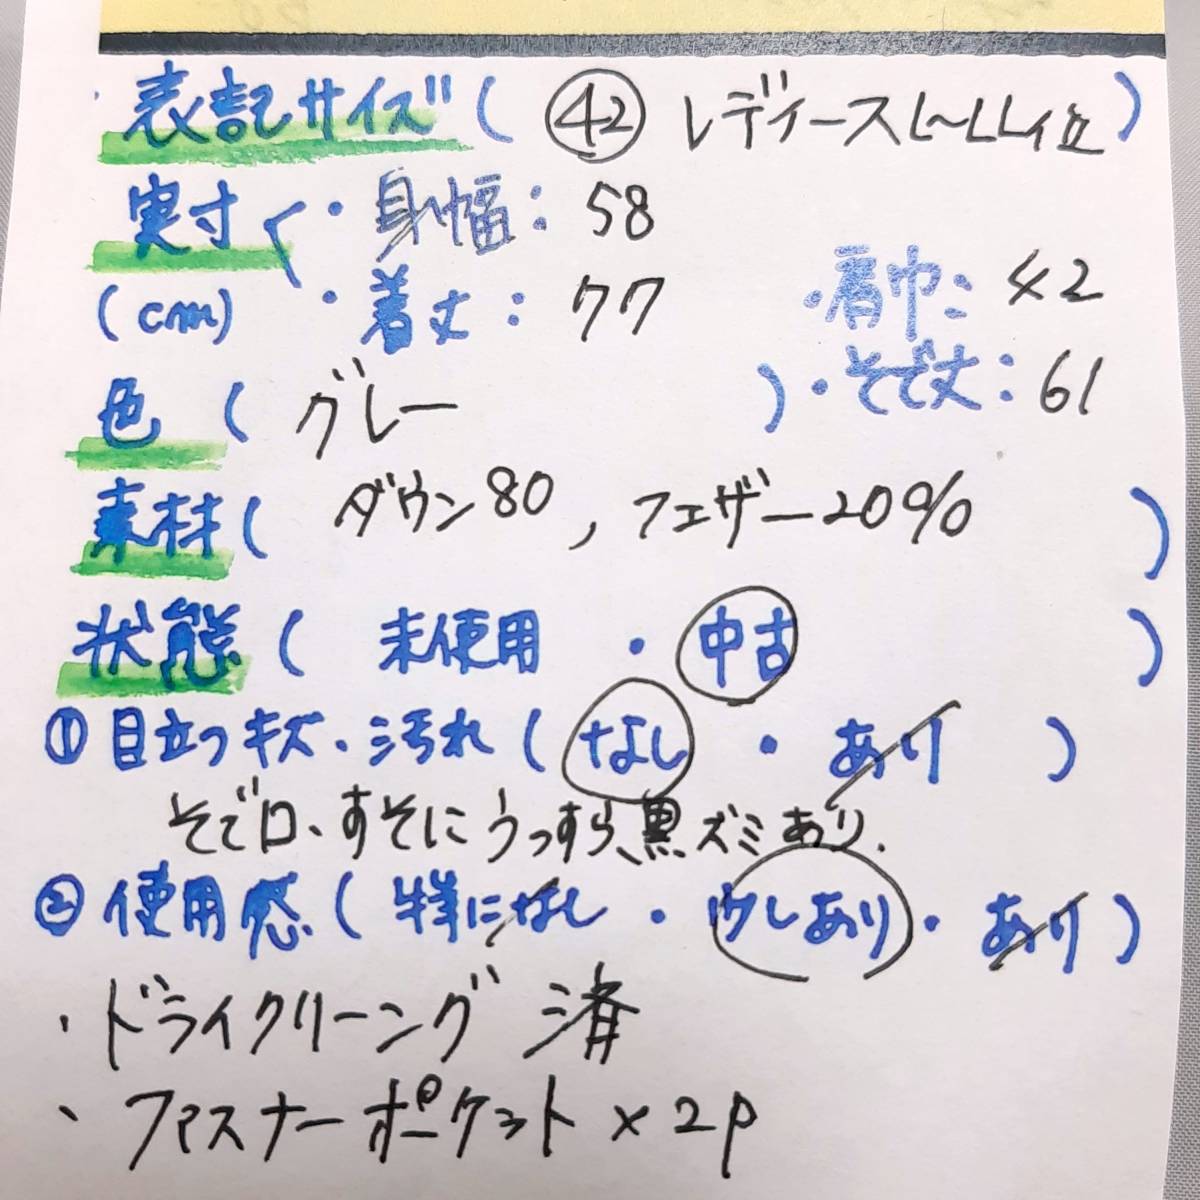 ・表記サイズ ( ㊷ レディースL〜LL位 )
実寸 < ・身幅: 58
(cm) ・着丈: 77 ・肩巾: 42
色 ( グレー ) ・そで丈: 61
素材 ( ダウン80, フェザー20% )
状態 ( 未使用 ・ 中古 )
① 目立つキズ・汚れ ( なし ・ あり )
そで口、すそにうっすら、黒ズミあり.
② 使用感 ( 特になし ・ 少しあり ・ あり )
・ドライクリーニング 済
・ファスナーポケット × 2P